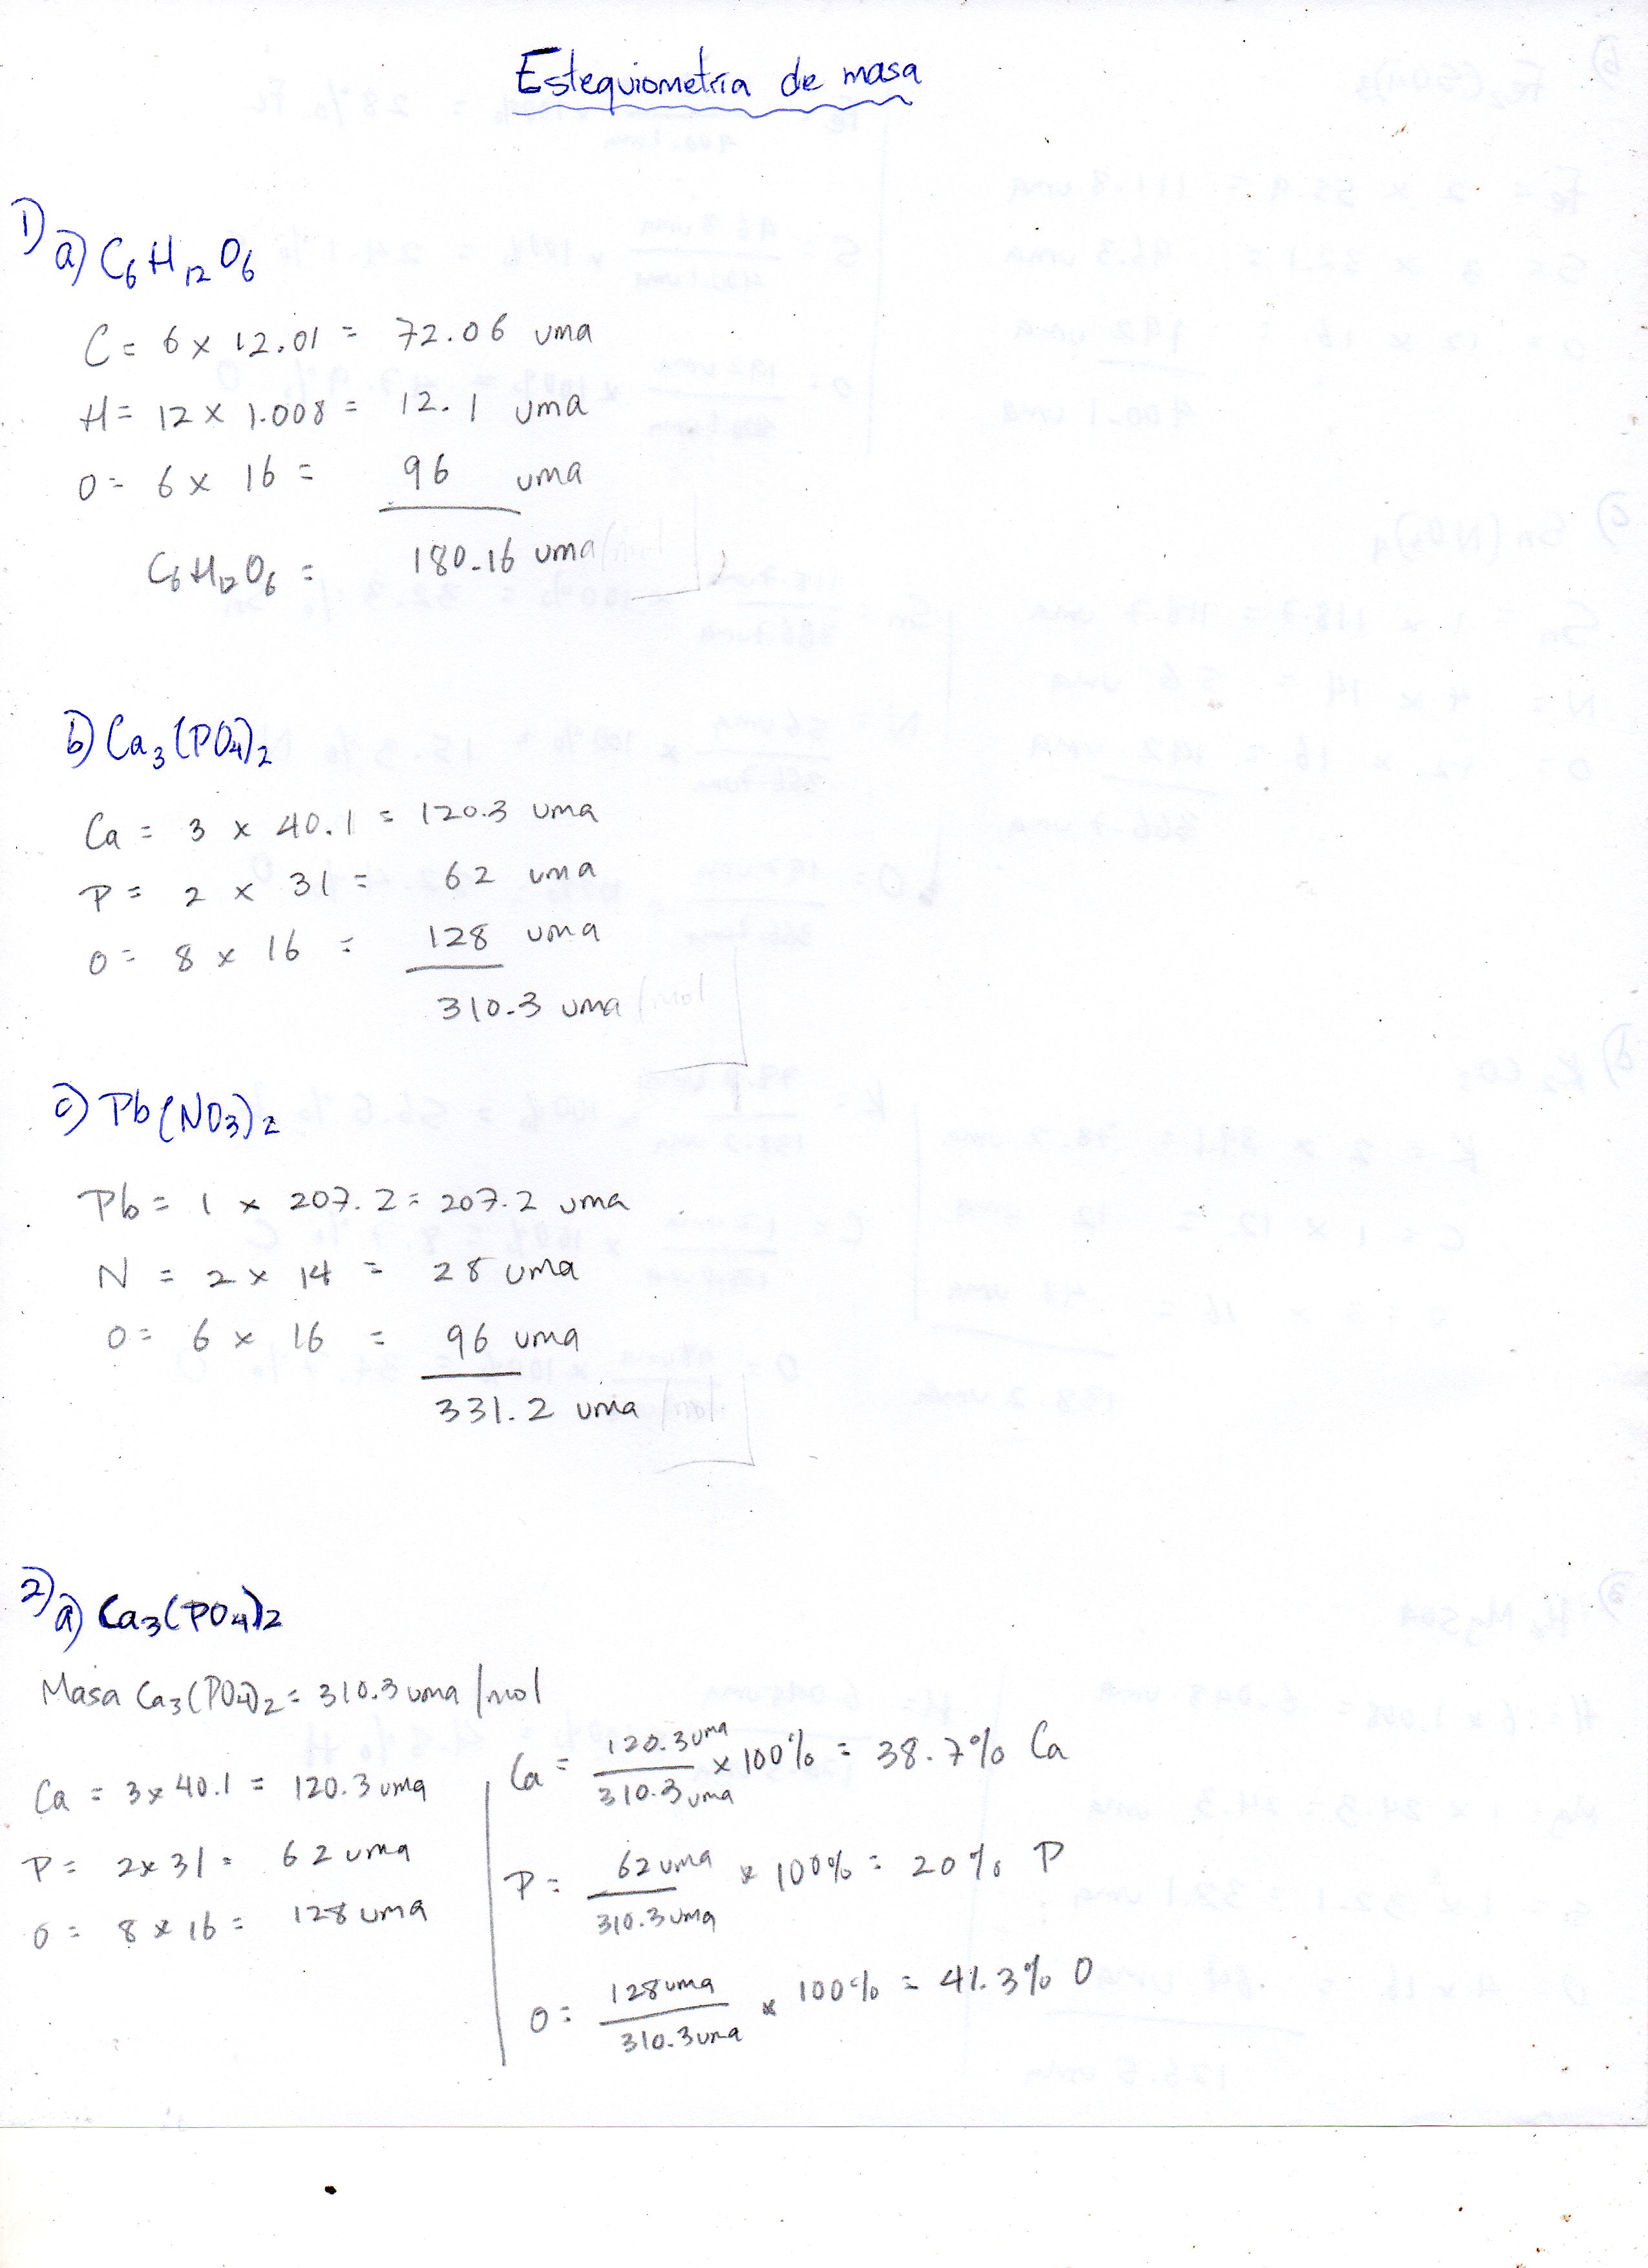 Estequiometría de masa
1) a) C6H12O6
C = 6 x 12.01 = 72.06 uma
H = 12 x 1.008 = 12.1 uma
O = 6 x 16 = 96 uma
C6H12O6 = 180.16 uma
b) Ca3(PO4)2
Ca = 3 x 40.1 = 120.3 uma
P = 2 x 31 = 62 uma
O = 8 x 16 = 128 uma
310.3 uma
c) Pb(NO3)2
Pb = 1 x 207.2 = 207.2 uma
N = 2 x 14 = 28 uma
O = 6 x 16 = 96 uma
331.2 uma
2) a) Ca3(PO4)2
Masa Ca3(PO4)2 = 310.3 uma/mol
Ca = 3 x 40.1 = 120.3 uma
P = 2 x 31 = 62 uma
O = 8 x 16 = 128 uma
Ca = 120.3 uma / 310.3 uma x 100% = 38.7% Ca
P = 62 uma / 310.3 uma x 100% = 20% P
O = 128 uma / 310.3 uma x 100% = 41.3% O